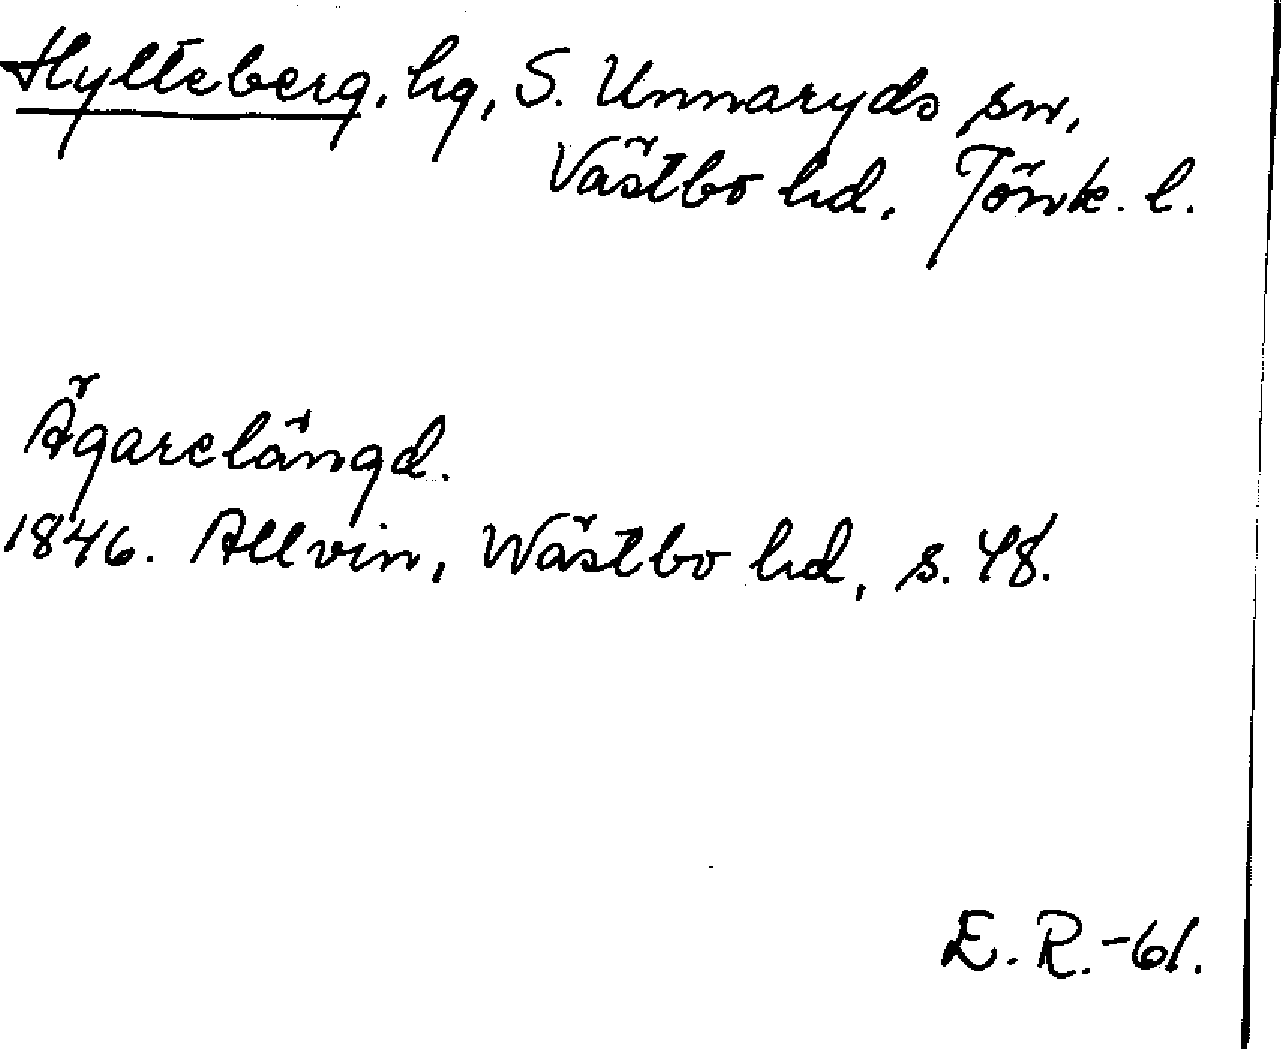 Hylteberg, hg, S. Unnaryds sn,
Västbo hd, Jönk. l.
Ägarelängd.
1846. Allvin, Wästbo hd, s. 48.
E. R. -61.